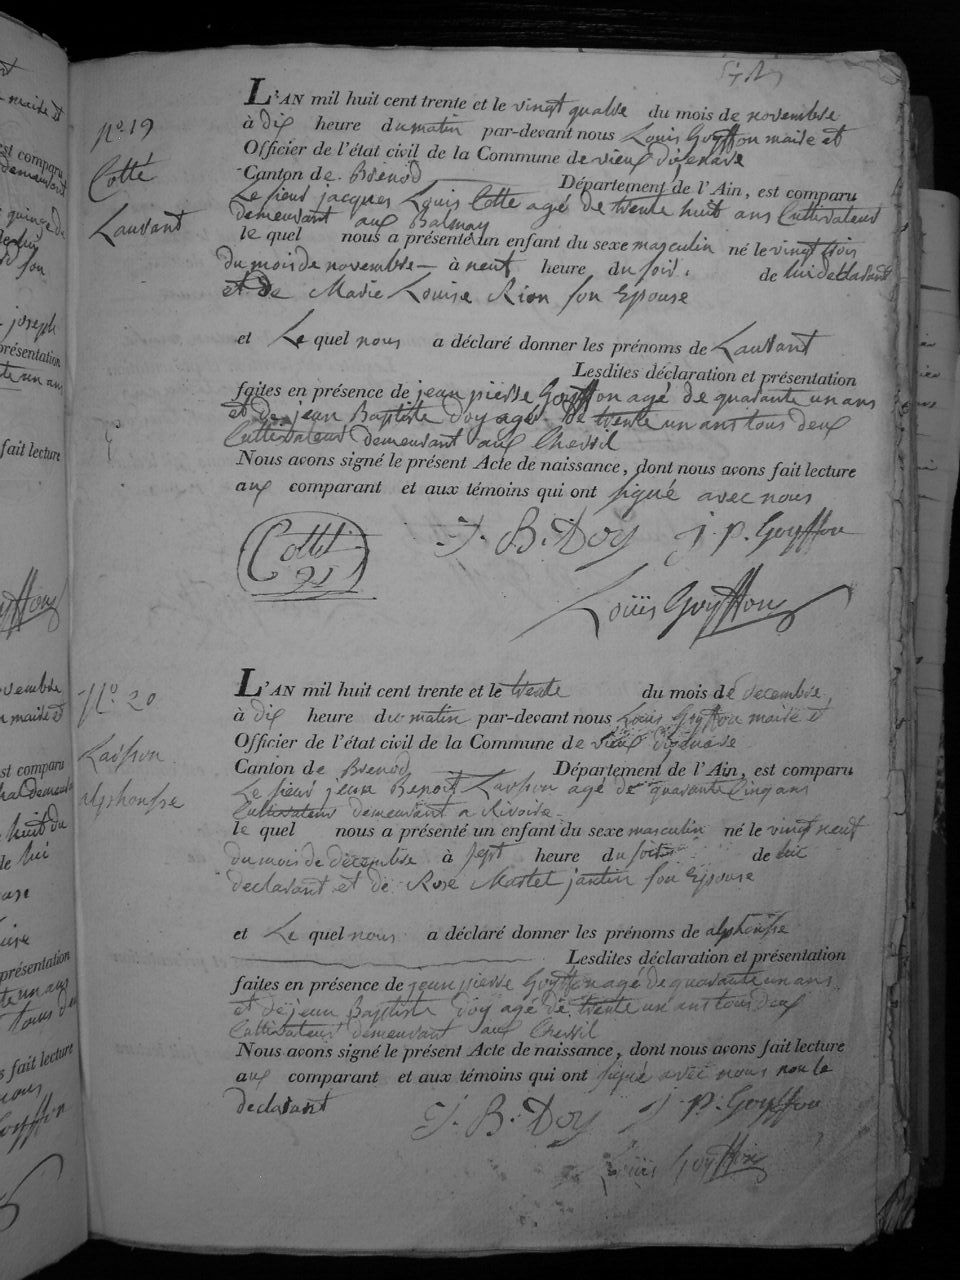 N°. 19
Cotté
Laurant
L'AN mil huit cent trente et le vingt quatre du mois de novembre
à dix heure du matin par-devant nous Louis Goyffon maire et
Officier de l'état civil de la Commune de vieux d'izenave
Canton de Brenod Département de l'Ain, est comparu
Le sieur jacques Louis Cotte agé de trente huit ans Cultivateur
demeurant aux Balmay
le quel nous a présenté un enfant du sexe masculin né le vingt trois
du mois de novembre à neuf heure du soir. de lui declarant
et de Marie Louise Rion son Epouse
et Le quel nous a déclaré donner les prénoms de Laurant
Lesdites déclaration et présentation
faites en présence de jean pierre Goyffon agé de quarante un ans
et de jean Baptiste Doy agé de trente un ans tous deux
Cultivateurs demeurant aux Chevril
Nous avons signé le présent Acte de naissance, dont nous avons fait lecture
aux comparant et aux témoins qui ont signé avec nous
Cottet
J. B. Doy j. p. Goyffon
Louis Goyffon
N°. 20
alphonsse
L'AN mil huit cent trente et le trente du mois de decembre
à dix heure du matin par-devant nous Louis Goyffon maire et
Officier de l'état civil de la Commune de vieux d'izenave
Canton de Brenod Département de l'Ain, est comparu
Le sieur jean Benoit agé de quarante Cinq ans
Cultivateur demeurant a Rivoire
le quel nous a présenté un enfant du sexe masculin né le vingt neuf
du mois de decembre à sept heure du soir de lui
declarant et de Rose Martel jantin son Epouse
et Le quel nous a déclaré donner les prénoms de alphonsse
Lesdites déclaration et présentation
faites en présence de jean pierre Goyffon agé de quarante un ans
et de jean Baptiste Doy agé de trente un ans tous deux
Cultivateurs demeurant aux Chevril
Nous avons signé le présent Acte de naissance, dont nous avons fait lecture
aux comparant et aux témoins qui ont signé avec nous non le
declarant
J. B. Doy j. p. Goyffon
Louis Goyffon